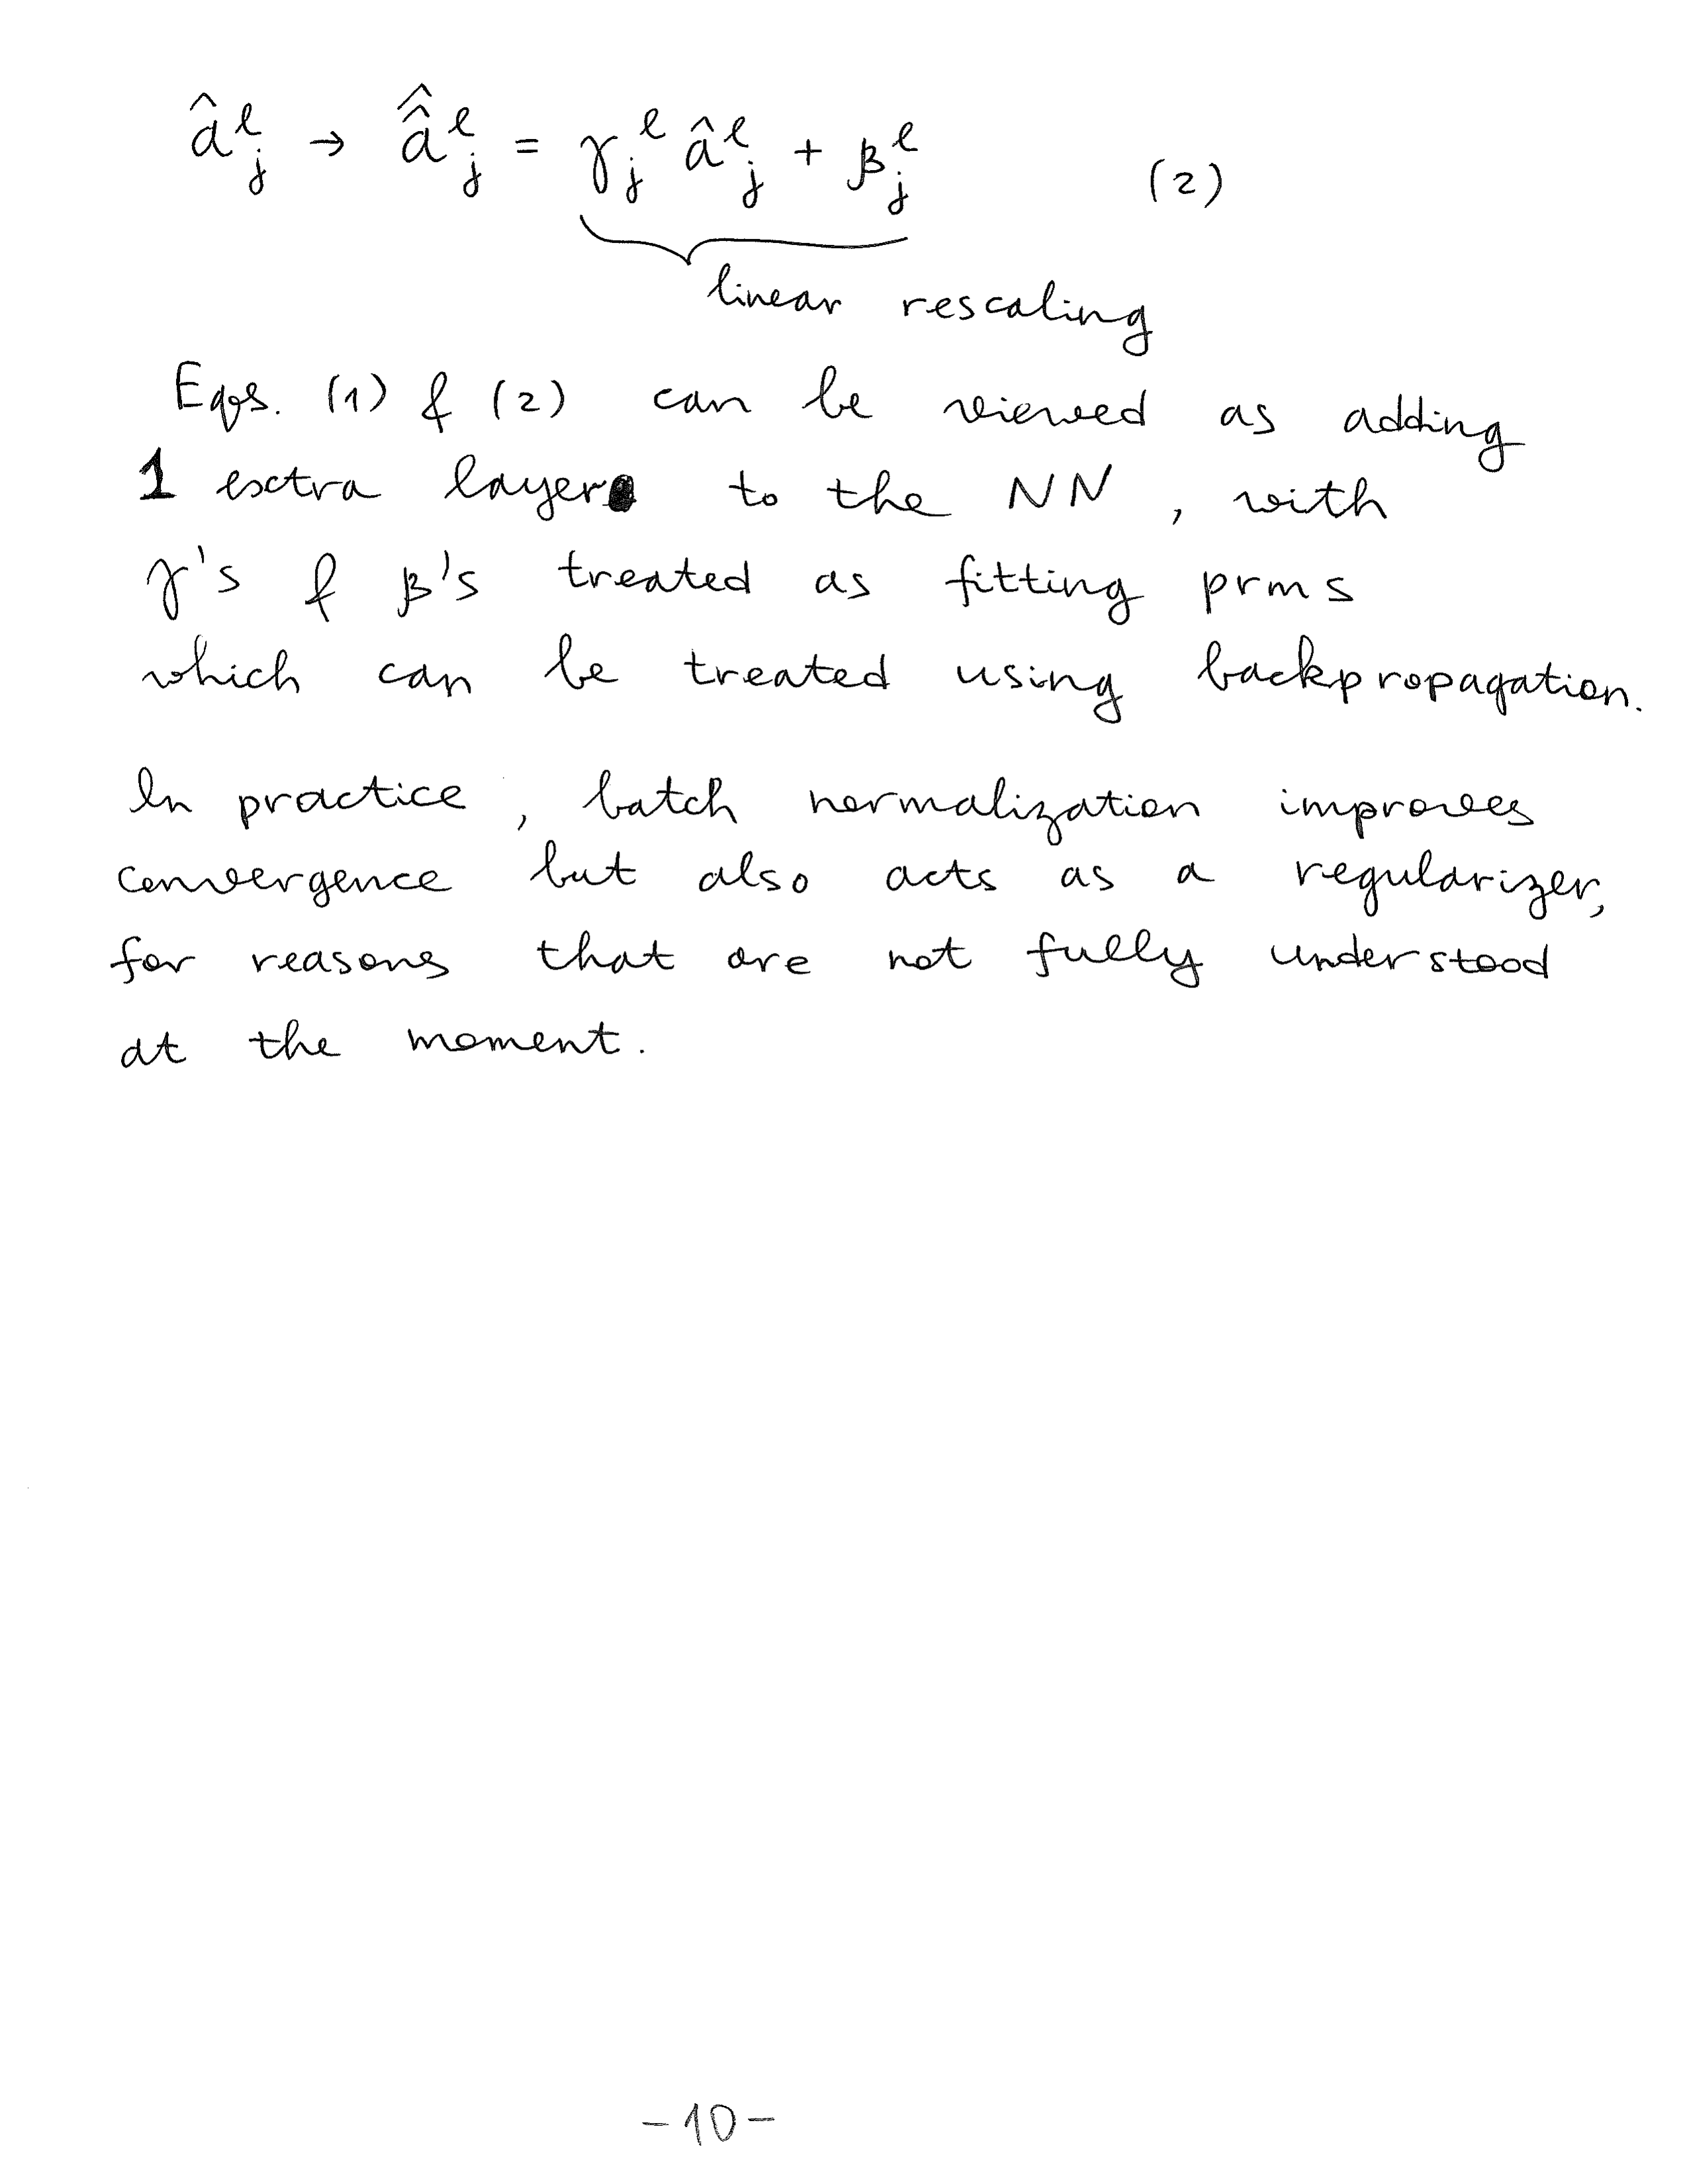 â^ℓ_j → â̂^ℓ_j = γ_j^ℓ â^ℓ_j + β^ℓ_j (2)
linear rescaling
Eqs. (1) & (2) can be viewed as adding
1 extra layer to the NN, with
γ's & β's treated as fitting prms
which can be treated using backpropagation.
In practice, batch normalization improves
convergence but also acts as a regularizer,
for reasons that are not fully understood
at the moment.
-10-